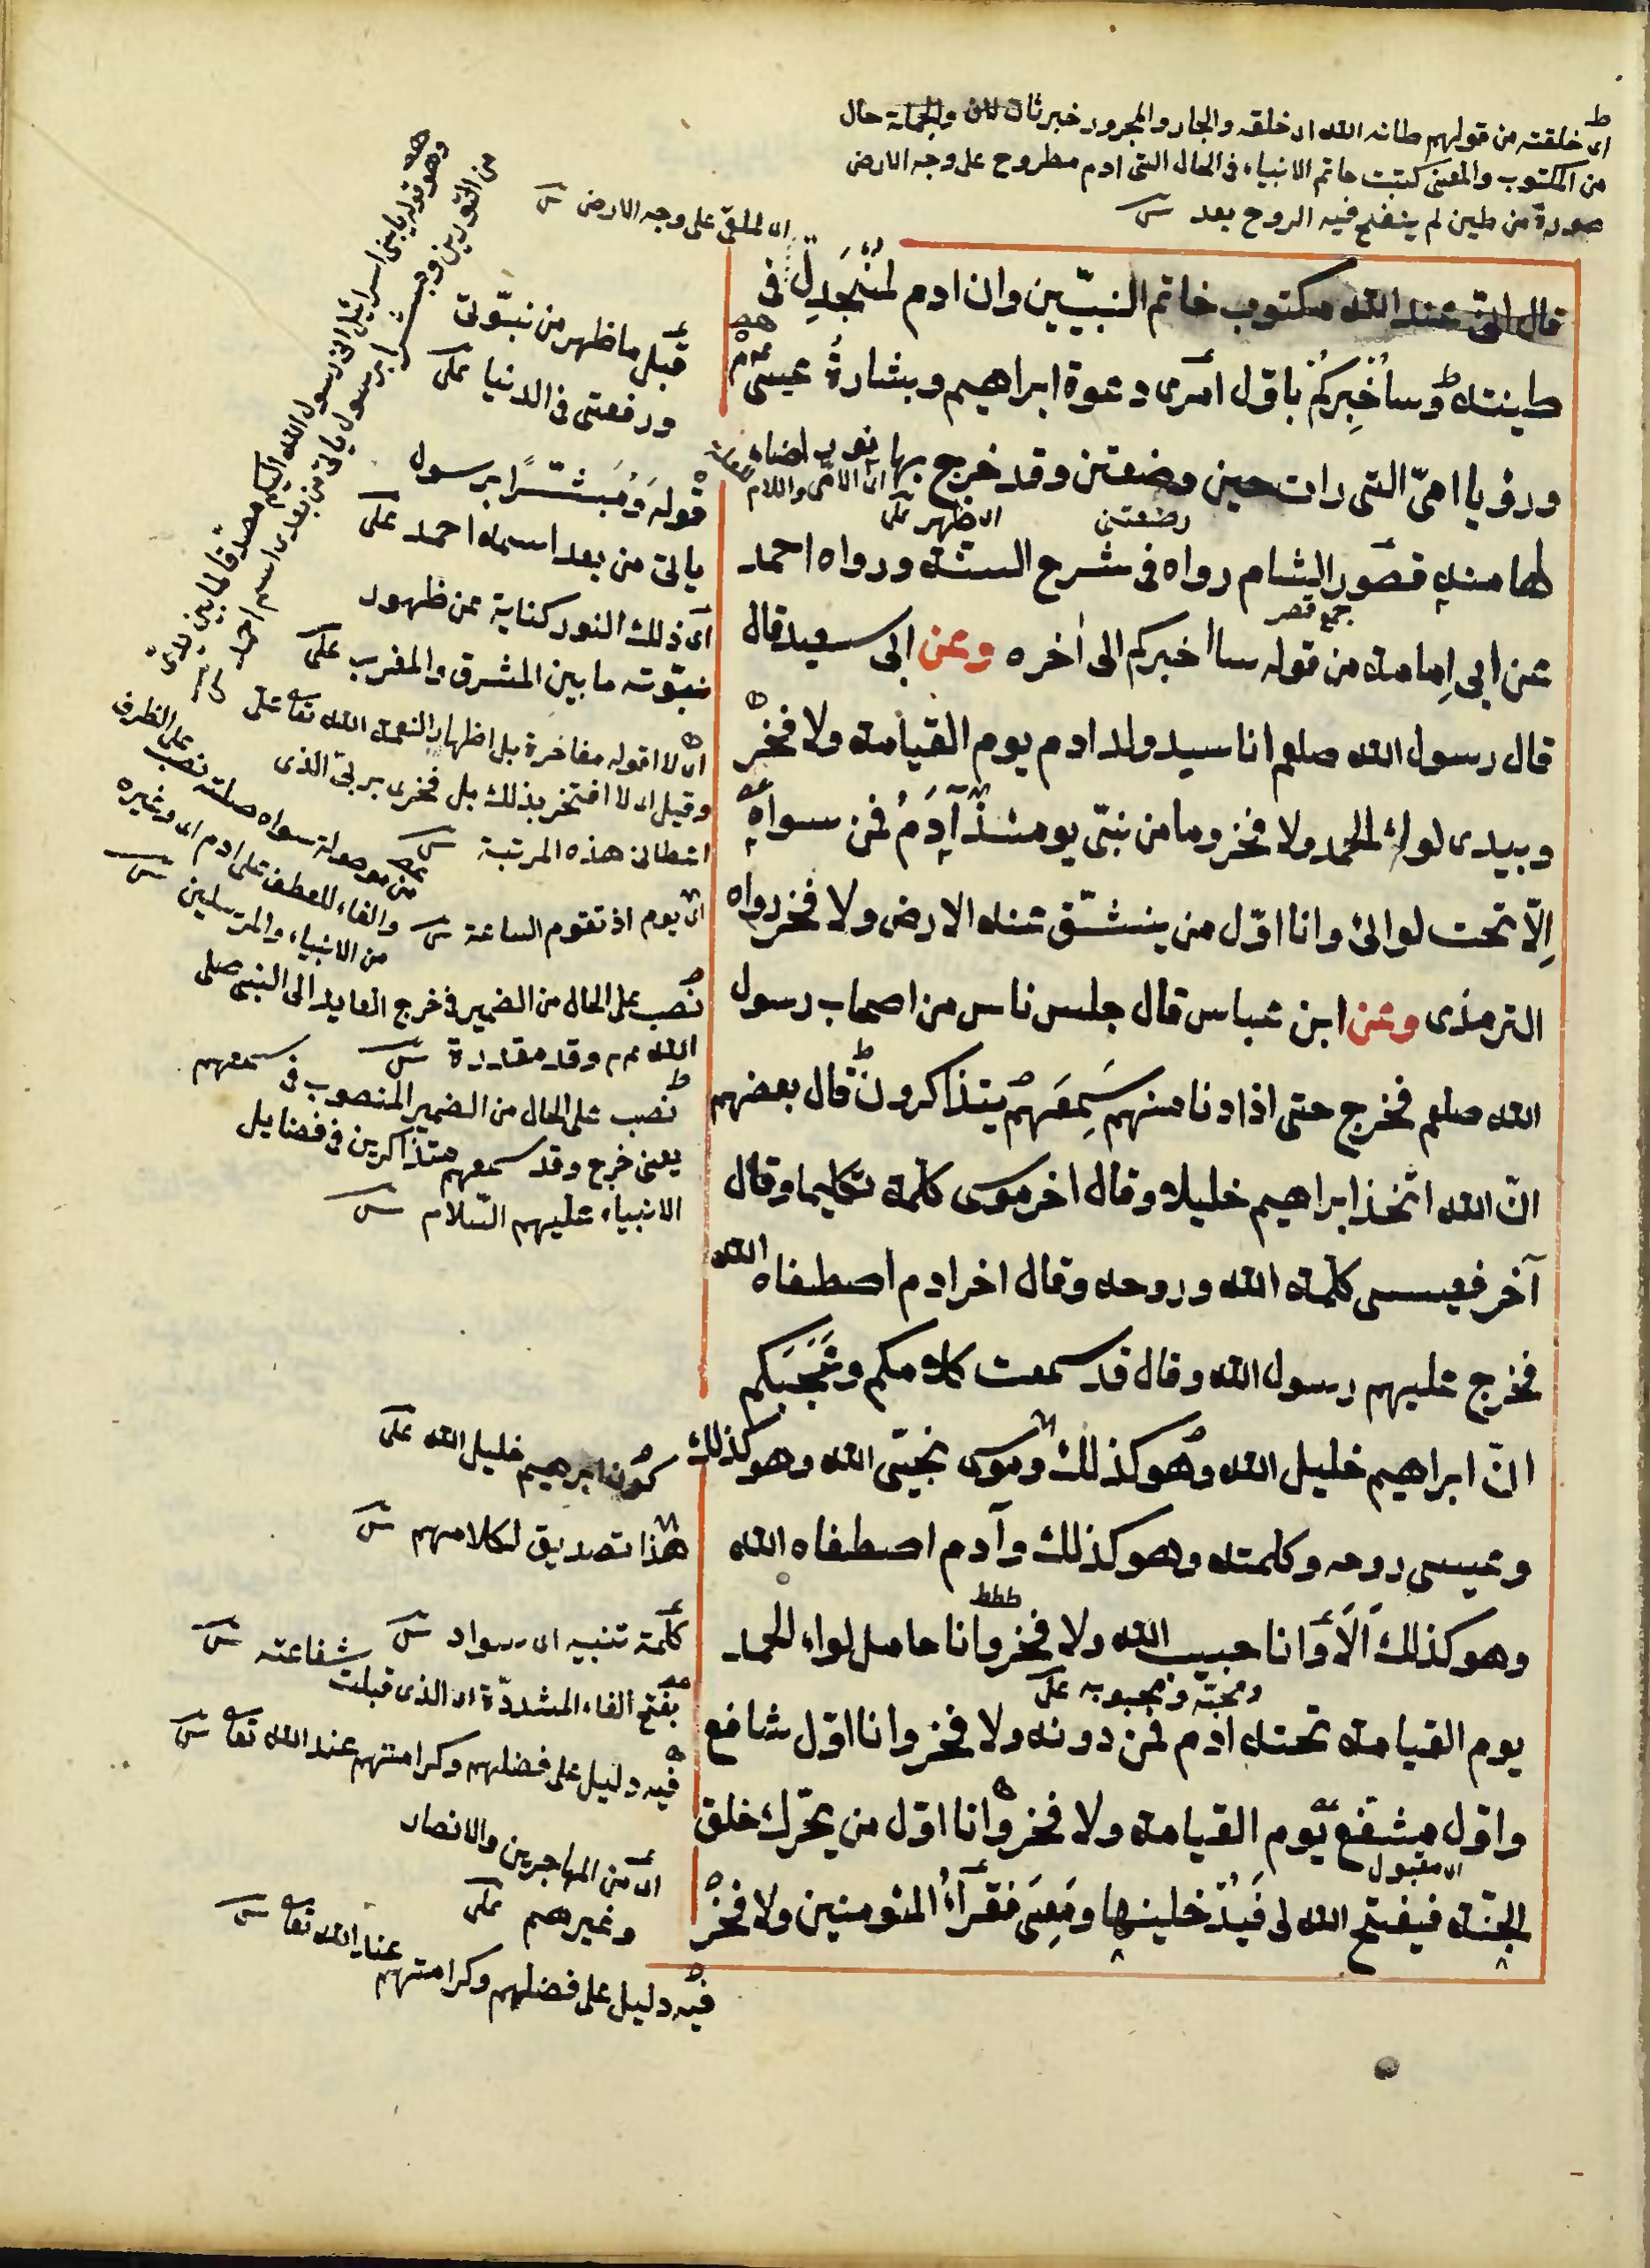 اى خلقته من قولهم طانه الله اى خلقه والجار والمجرور خبر ثان لان والجملة حال
من المكتوب والمعنى كتبت خاتم الانبياء فى الحال التى ادم مطروح على وجه الارض
صورة من طين لم ينفخ فيه الروح بعد
اى لملقى على وجه الارض
قال انى عند الله مكتوب خاتم النبيّين وان ادم لمُنْجَدِل فى
طينته وسأُخْبِركُم باوّل امرى دعوة ابراهيم وبشارةُ عيسى
ورؤيا امىّ التى رات حين وضعتنى وقد خرج بها نور اضاء
اى ظهر
وضعتنى
لها منه قصور الشام رواه فى شرح السنّة ورواه احمد
جمع قصر
عن ابى اِمامة من قوله سااخبركم الى اٰخره وعن ابى سعيد قال
قال رسول الله صلعم انا سيد ولد ادم يوم القيامة ولا فخر
وبيدى لواء الحمد ولا فخر وما من نبىّ يومئذ آدَمُ فمن سواه
اِلّا تحت لوائى وانا اوّل من ينشقّ عنه الارض ولا فخر رواه
الترمذى وعن ابن عباس قال جلس ناس من اصحاب رسول
الله صلعم فخرج حتى اذا دنا منهم سَمِعَهم يتذاكرون قال بعضهم
انّ الله اتّخذ ابراهيم خليلا وقال اخر موسى كلّمه تكليما وقال
آخر فعيسى كلمة الله وروحه وقال اخر ادم اصطفاه الله
فخرج عليهم رسول الله وقال قد سمعت كلامكم وعَجَبَكم
انّ ابراهيم خليل الله وهو كذلك وموسى نجىّ الله وهو كذلك
وعيسى روحه وكلمته وهو كذلك وآدم اصطفاه الله
وهو كذلك اَلَا وانا حبيب الله ولا فخر وانا حامل لواء الحمد
ومحبّه ومحبوبه
يوم القيامة تحته ادم فمن دونه ولا فخر وانا اوّل شافع
واوّل مشفّع يوم القيامة ولا فخر وانا اوّل من يحرّك خلق
اى مقبول
الجنّة فيفتح الله لى فَيُدْخلينها ومَعِى فقرآءُ المؤمنين ولا فخر
وهو قوله يا بنى اسرائيل انى رسول الله اليكم مصدّقا لما بين يدىّ
من التورية ومبشّرا برسول ياتى من بعدى اسمه احمد
قبل ما ظهر من نبوّتى
ورفعتى فى الدنيا
قوله وَمُبشّرًا برسول
ياتى من بعد اسمه احمد
اى ذلك النور كناية عن ظهور
نبوّته ما بين المشرق والمغرب
اى لا اقوله مفاخرة بل اظهار النعمة الله تعا
وقيل اى لا افتخر بذلك بل فخرى بربى الذى
اعطانى هذه المرتبة
من موصولة سواه صلته نصب على الظرف
والفاء للعطف على ادم اى وغيره
من الانبياء والمرسلين
اى يوم اذ تقوم الساعة
نصب على الحال من الضمير فى خرج العايد الى النبى صلى
الله عم وقد مقدرة
نصب على الحال من الضمير المنصوب فى سمعهم
يعنى خرج وقد سمعهم متذاكرين فى فضايل
الانبياء عليهم السّلام
كون ابرهيم خليل الله
هذا تصديق لكلامهم
كلمة تنبيه
بفتح الفاء المشددّة اى الذى قبلت شفاعته
فيه دليل على فضلهم وكرامتهم عند الله تعا
اى من المهاجرين والانصار
وغيرهم
فيه دليل على فضلهم وكرامتهم عند الله تعا